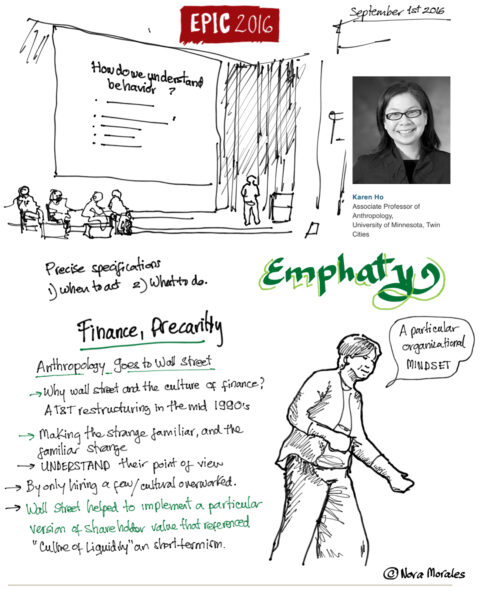 EPIC 2016
September 1st 2016
How do we understand
behavior ?
Karen Ho
Associate Professor of
Anthropology,
University of Minnesota, Twin
Cities
Precise specifications
1) When to act 2) What to do.
Emphaty
Finance, Precarity
Anthropology goes to Wall Street
→ Why wall street and the culture of finance?
AT&T restructuring in the mid 1990's
→ Making the strange familiar, and the
familiar strange
→ UNDERSTAND their point of view
→ By only hiring a few/cultural overworked.
→ Wall Street helped to implement a particular
version of shareholder value that referenced
"Culture of Liquidity" an short-termism.
A particular
organizational
MINDSET
@Nora Morales